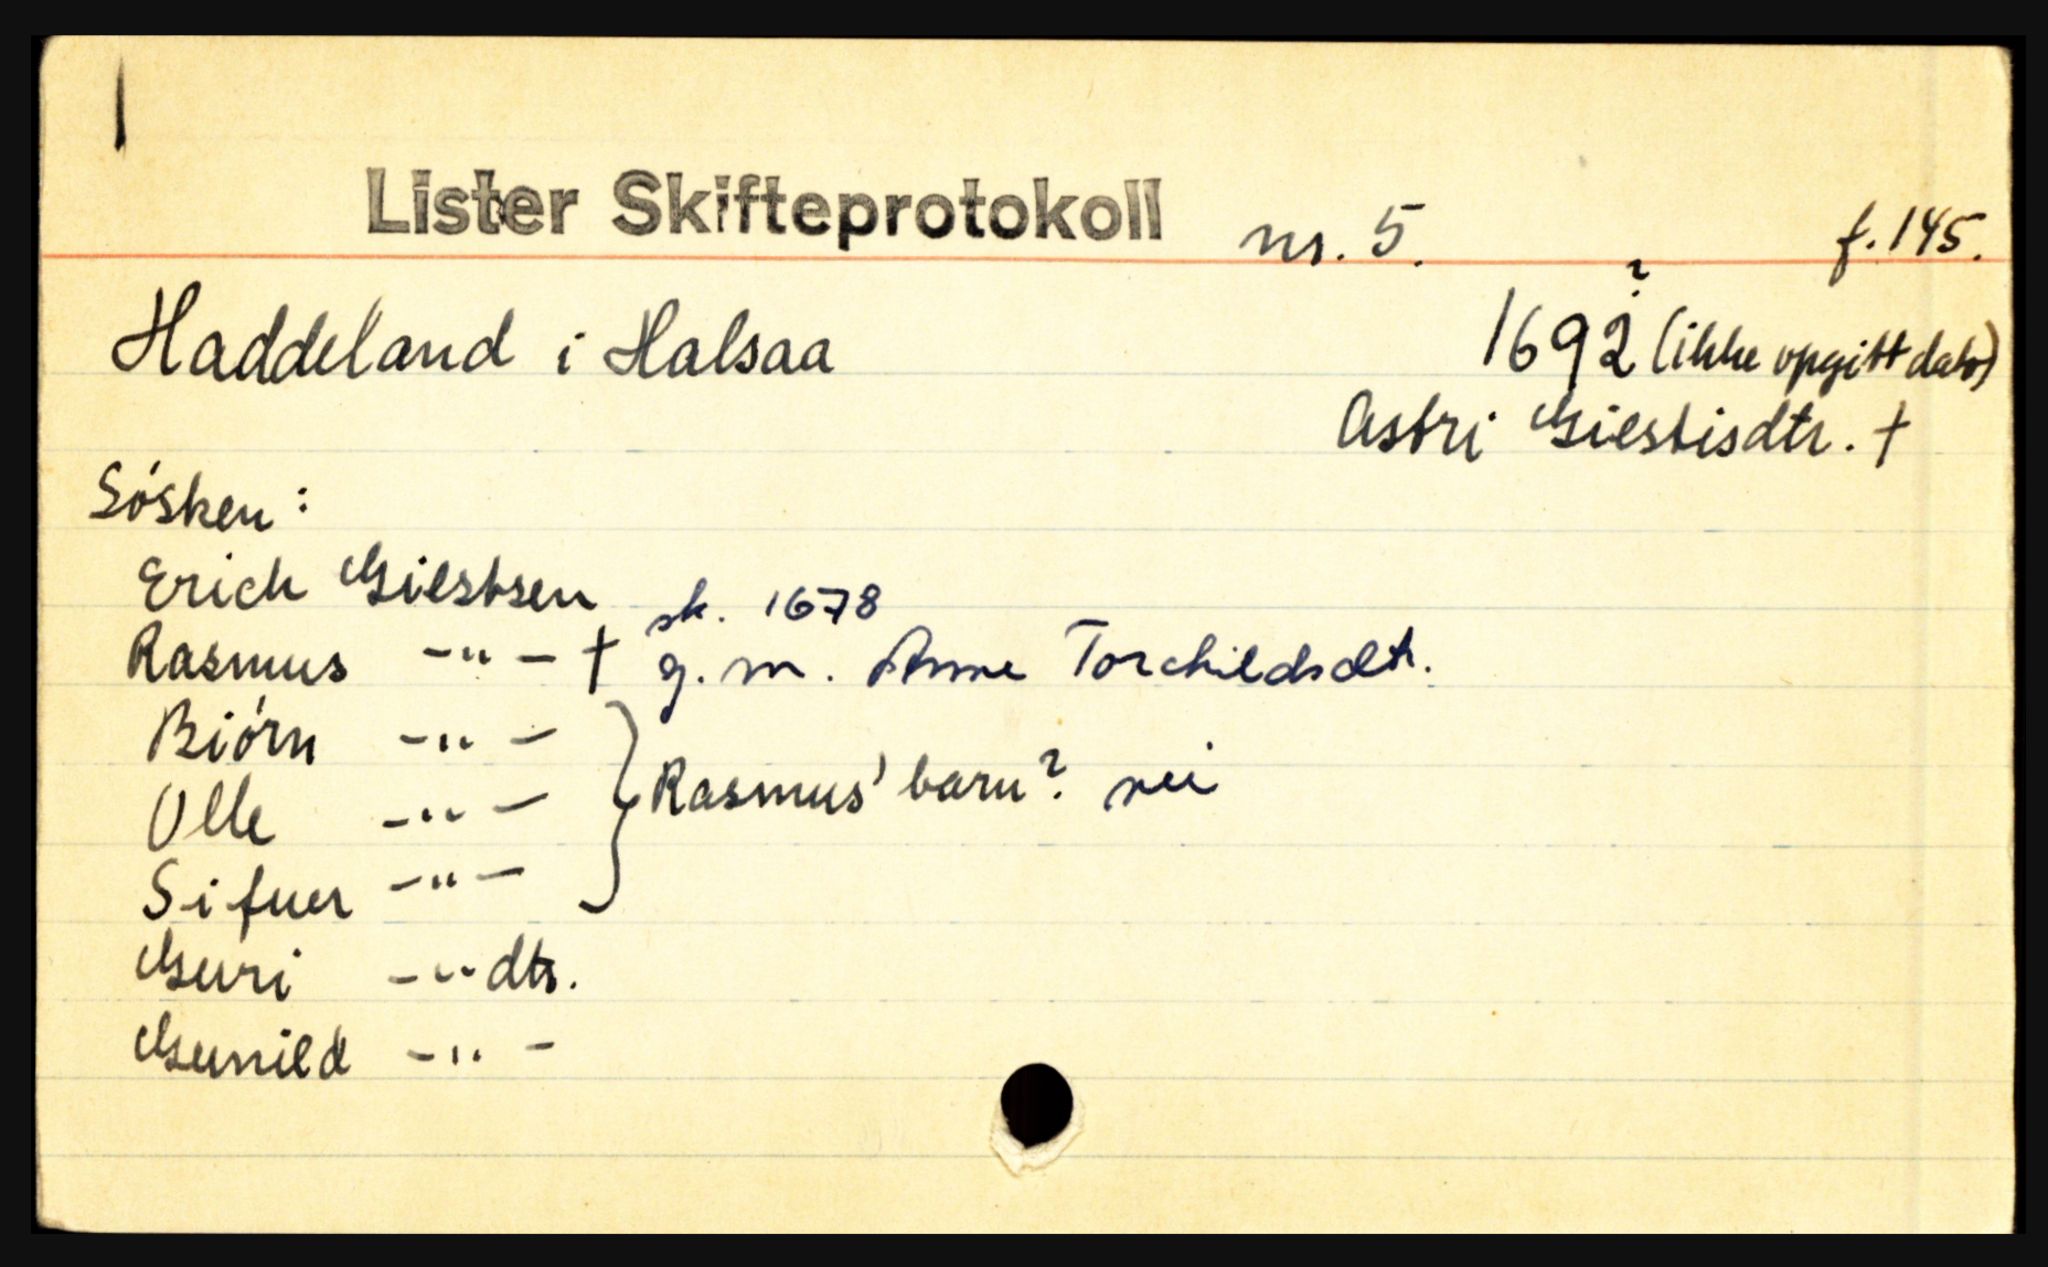 Lister Skifteprotokoll nr. 5. f. 145.
Haddeland i Halsaa 1692? (ikke opgitt dato)
Astri Giestisdtr. †
Sósken:
Erich Giestsen
Rasmus -"- † sk. 1678 g. m. Anne Torchildsdtr.
Biórn -"-
Olle -"- } Rasmus' barn? nei
Sifuer -"-
Guri -"-dtr.
Gunild -"-